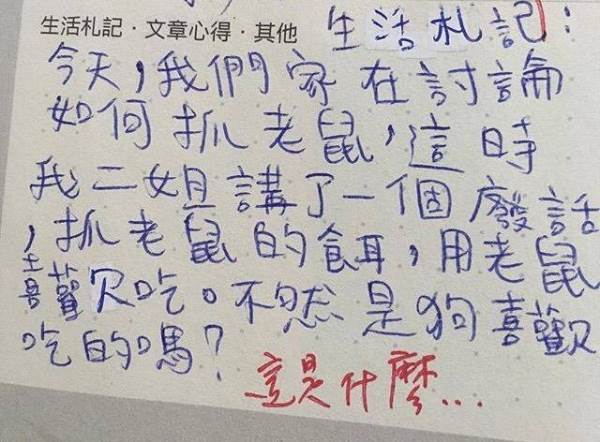 生活札記．文章心得．其他
生活札記：
今天，我們家在討論
如何抓老鼠，這時
我二姐講了一個廢話
，抓老鼠的餌，用老鼠
喜歡吃。不然是狗喜歡
吃的嗎？
這是什麼...